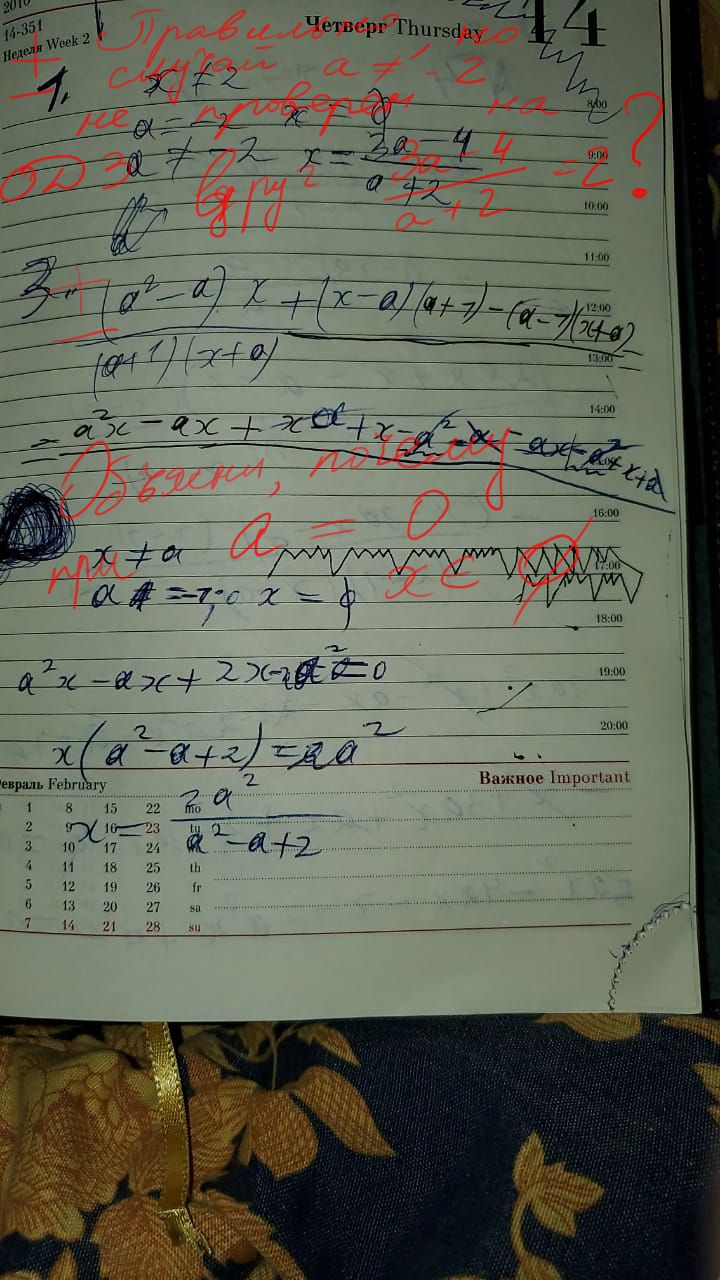 2010
14-351
Неделя Week 2
Четверг Thursday
14
+ Правильно, но
− случай a ≠ -2
не проверен на
ОДЗ
вдруг
3a-4
a+2
= 2 ?
1. x ≠ 2
a = -2 x = ϕ
a ≠ -2 x = 3a-4
a+2
8:00
9:00
10:00
11:00
12:00
13:00
14:00
16:00
17:00
18:00
19:00
20:00
3. (a²-a)x + (x-a)(a+1) - (a-1)(x+a) =
(a+1)(x+a)
= a²x - ax + xa + x - a²
+
−
Объясни, почему
при a = 0
x ∈ ∅
x ≠ a
x = ϕ
a²x - ax + 2x
= 0
x(a²-a+2) = 2a²
x = 2a²
a²-a+2
Февраль February
Важное Important
1 8 15 22 mo
2 9 16 23 tu
3 10 17 24
4 11 18 25 th
5 12 19 26 fr
6 13 20 27 sa
7 14 21 28 su